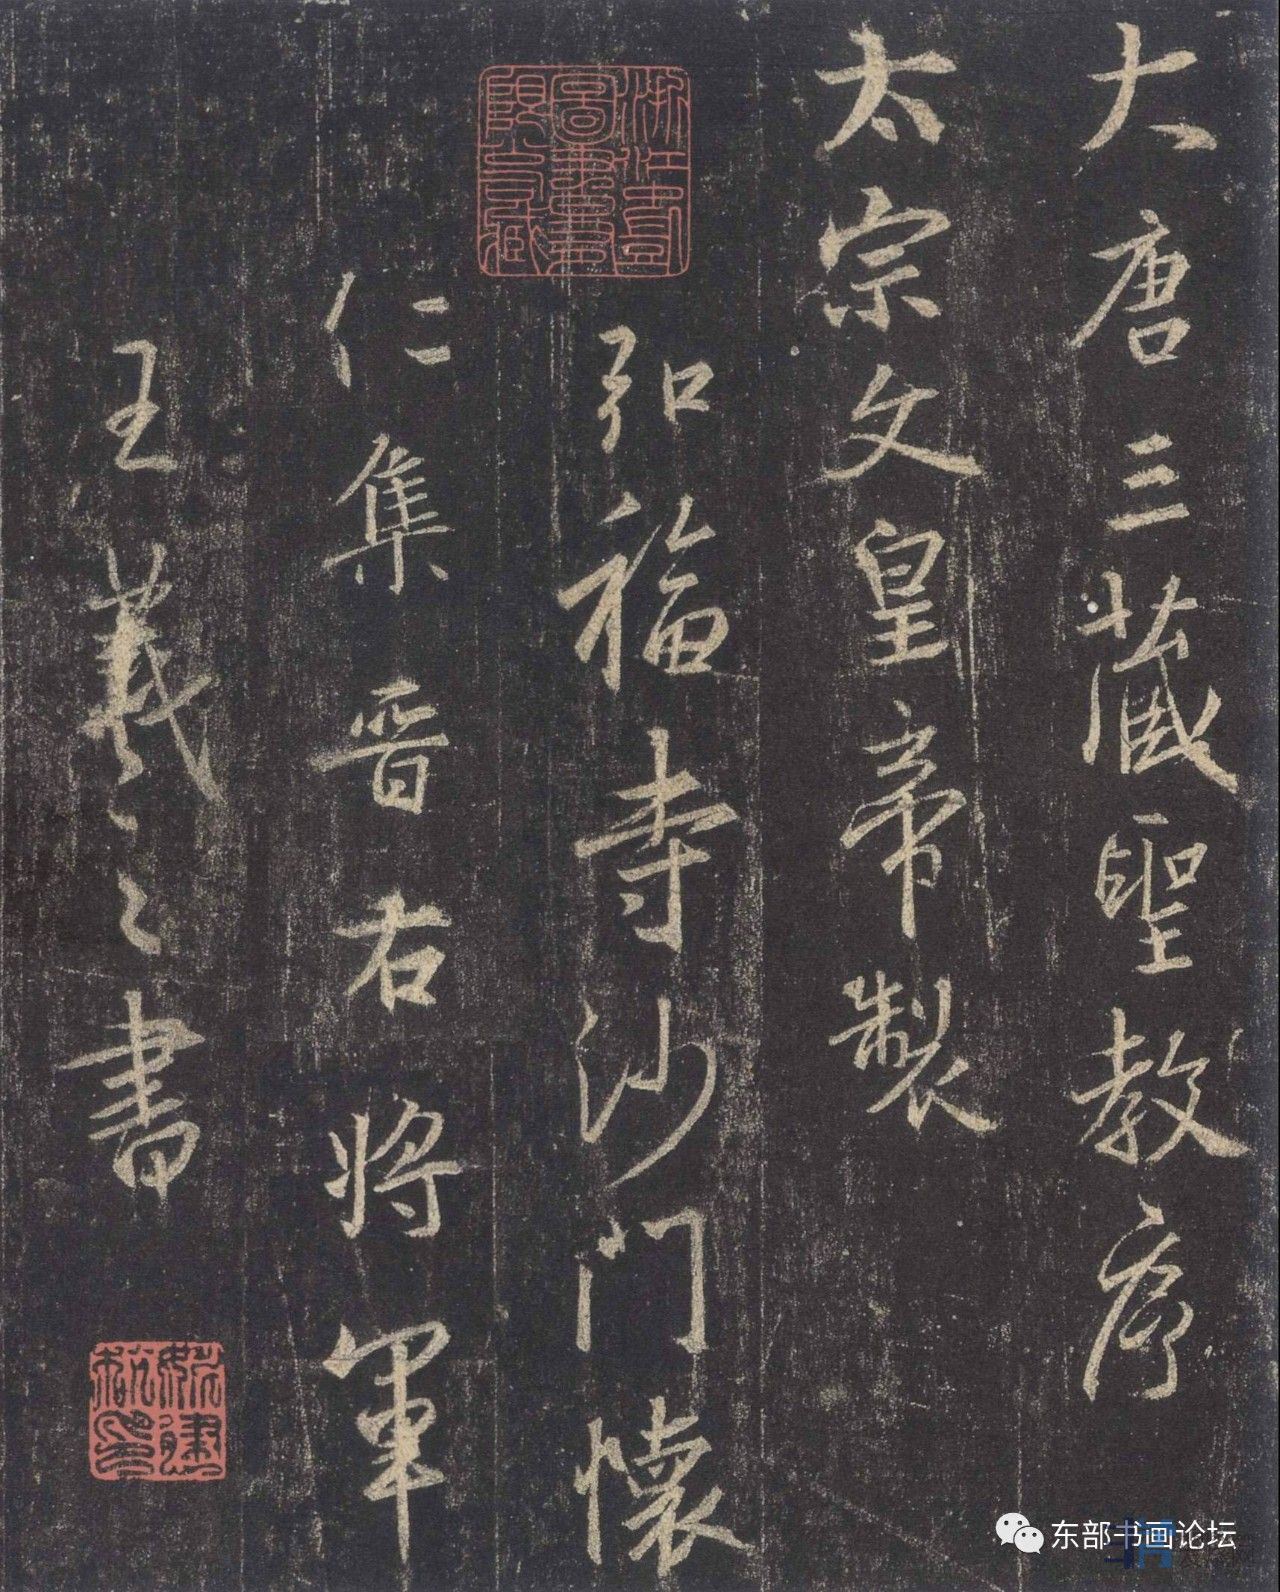 大唐三藏聖教序
太宗文皇帝製
弘福寺沙門懷
仁集晋右將軍
王羲之書
东部书画论坛